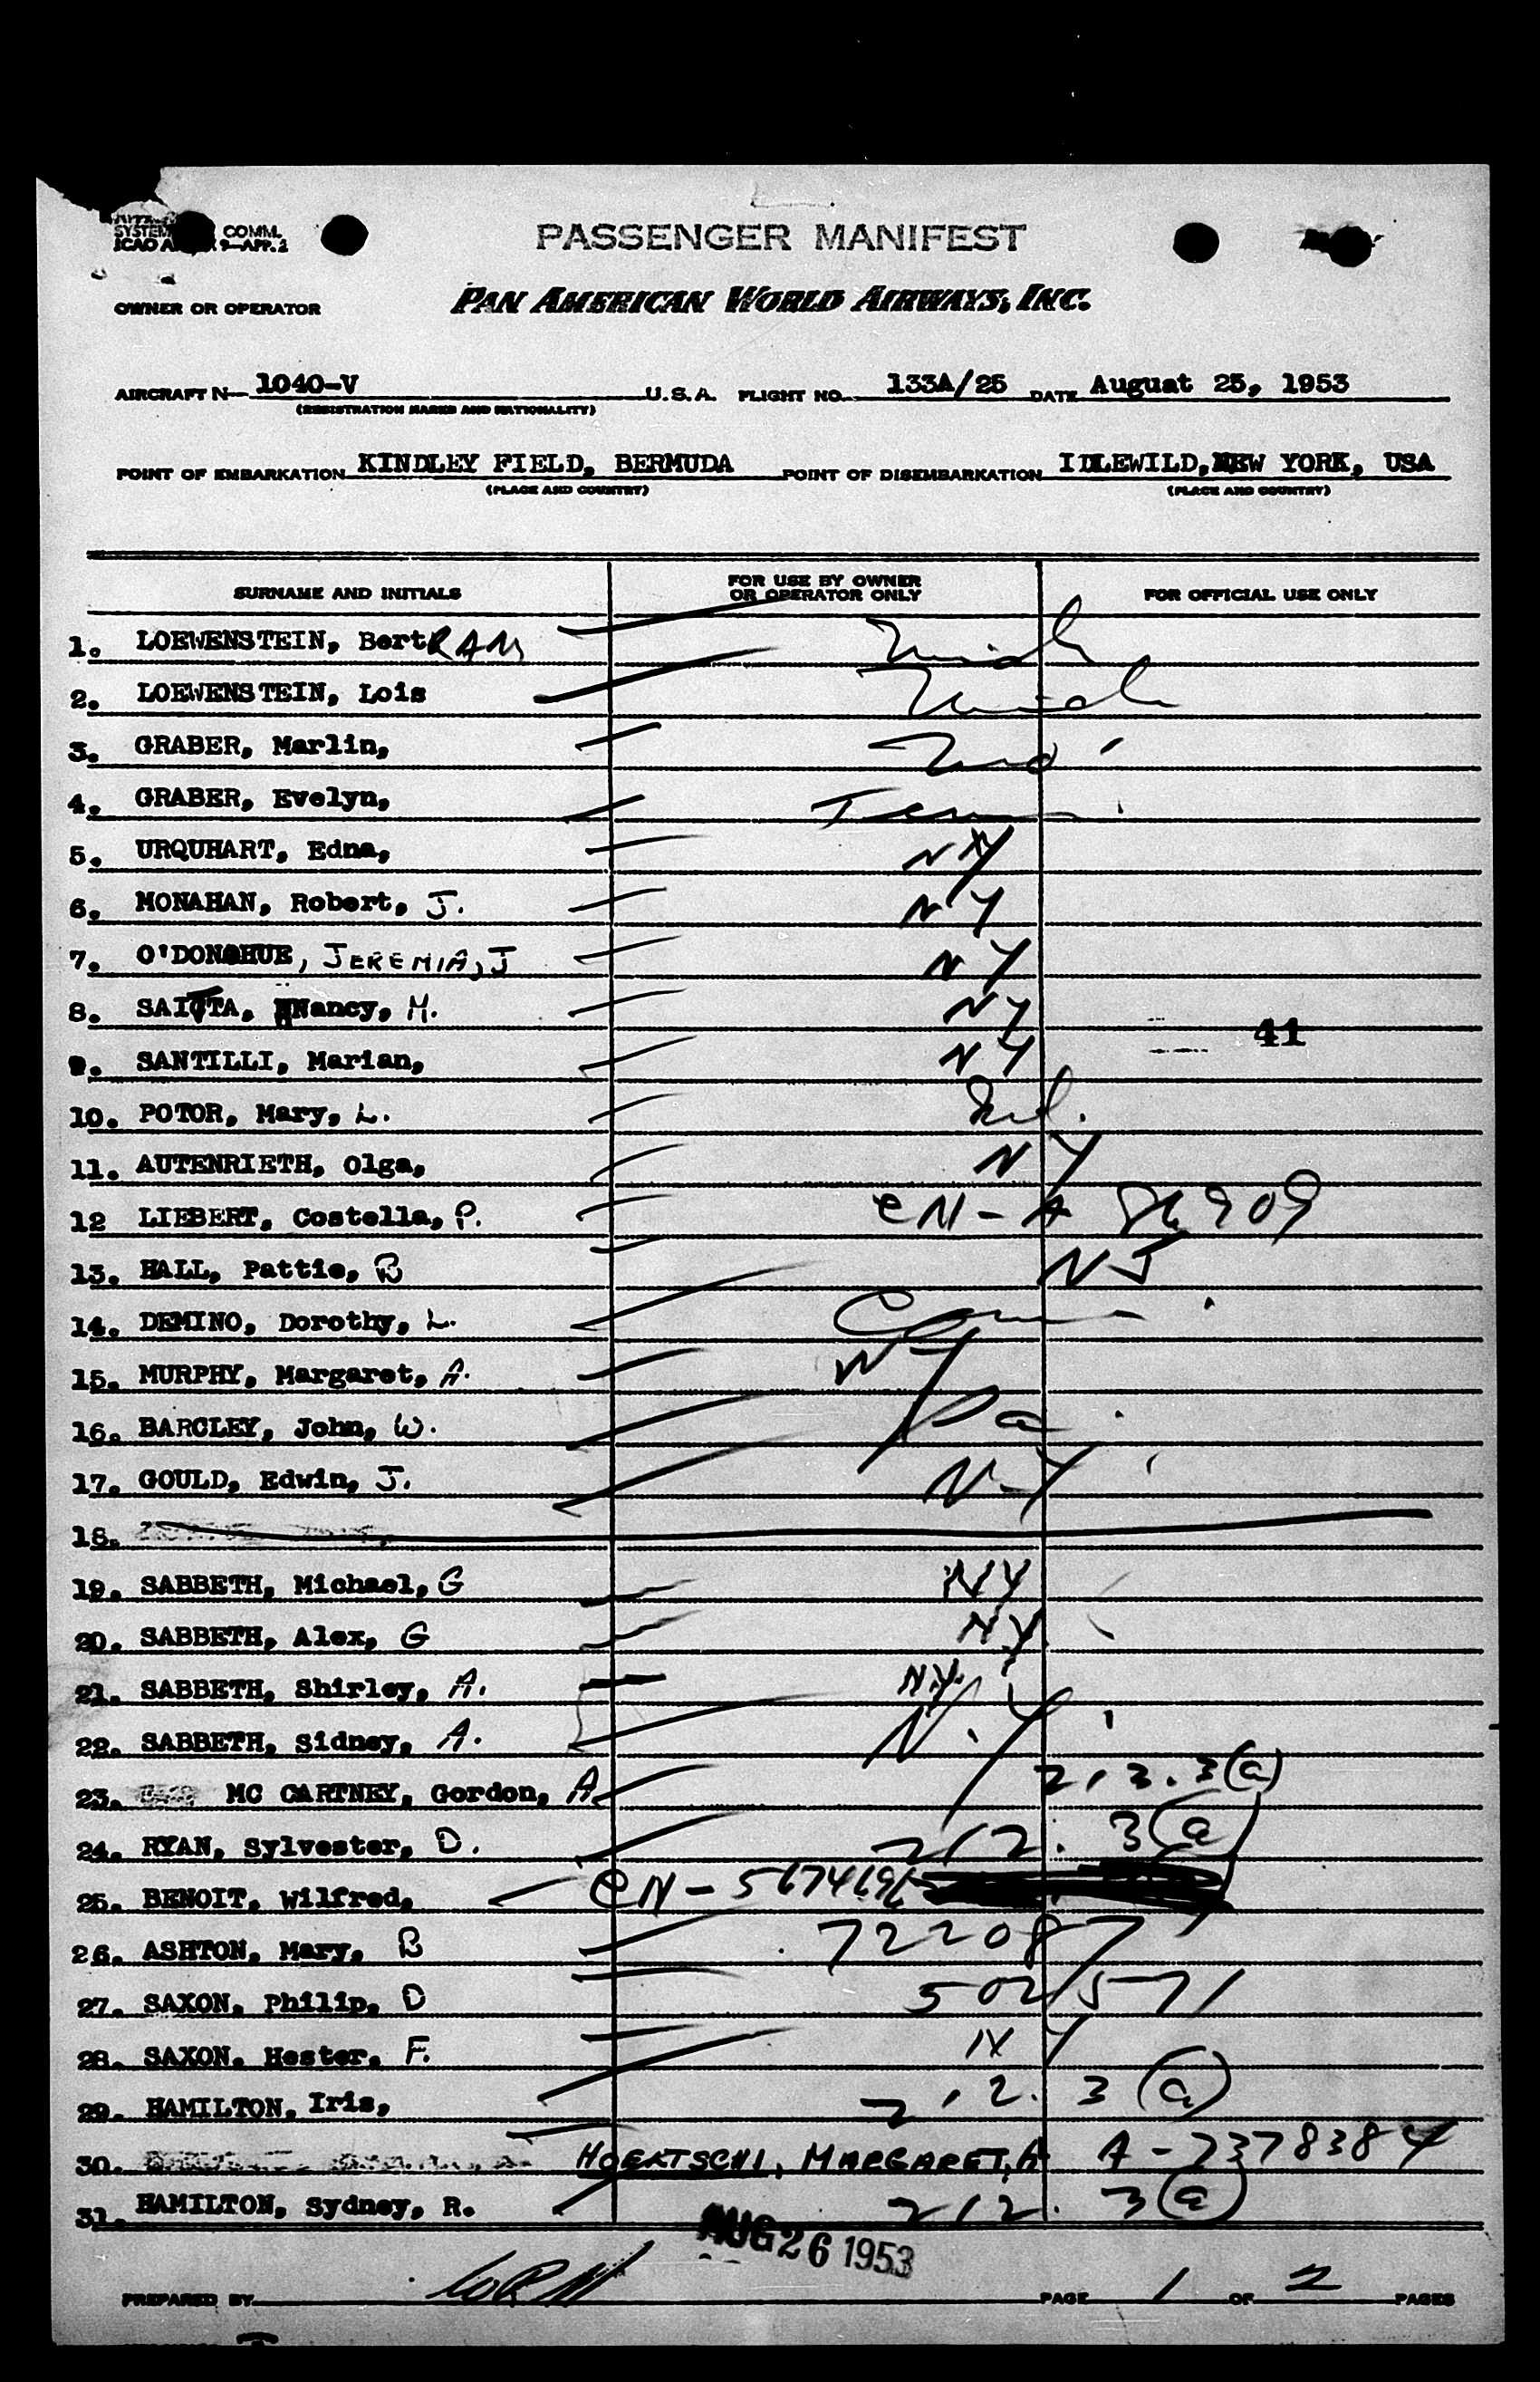 SYSTEM COMM.
ICAO A 9—APP. 2
PASSENGER MANIFEST
OWNER OR OPERATOR PAN AMERICAN WORLD AIRWAYS, INC.
AIRCRAFT N— 1040-V U.S.A. FLIGHT NO. 133A/25 DATE August 25, 1953
(REGISTRATION MARKS AND NATIONALITY)
POINT OF EMBARKATION KINDLEY FIELD, BERMUDA POINT OF DISEMBARKATION IDLEWILD, NEW YORK, USA
(PLACE AND COUNTRY) (PLACE AND COUNTRY)
SURNAME AND INITIALS FOR USE BY OWNER OR OPERATOR ONLY FOR OFFICIAL USE ONLY
1. LOEWENSTEIN, BertRAM Mich
2. LOEWENSTEIN, Lois Mich
3. GRABER, Marlin,
4. GRABER, Evelyn,
5. URQUHART, Edna, NY
6. MONAHAN, Robert, J. NY
7. O'DONOHUE, JEREMIA, J NY
8. SAITTA, Nancy, M. NY
41
9. SANTILLI, Marian, NY
10. POTOR, Mary, L.
11. AUTENRIETH, Olga, NY
12 LIEBERT, Costella, P. CN-A
13. HALL, Pattie, B NJ
14. DEMINO, Dorothy, L. Conn
15. MURPHY, Margaret, A. NY
16. BARCLEY, John, W. Pa
17. GOULD, Edwin, J. NY
18.
19. SABBETH, Michael, G NY
20. SABBETH, Alex, G NY
21. SABBETH, Shirley, A. N.Y.
22. SABBETH, Sidney, A. N.Y.
23. MC CARTNEY, Gordon, A 212.3(a)
24. RYAN, Sylvester, D. 212.3(a)
25. BENOIT, Wilfred, CN-
26. ASHTON, Mary, B 722087
27. SAXON, Philip, D 502571
28. SAXON, Hester, F. NY
29. HAMILTON, Iris, 212.3(a)
30. HOERTSCHI, MARGARET, A A-7378384
31. HAMILTON, Sydney, R. 212.3(a)
AUG 26 1953
PREPARED BY PAGE 1 OF 2 PAGES